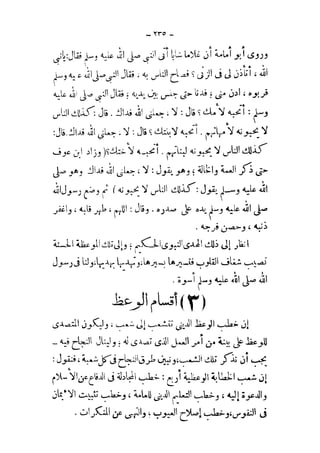 - ٢٣٥ -
وروى أبو أمامة أن غلاما شابا أتى النبى صلى الله عليه وسلم فقال: يانبى
الله ، أتأذن لى فى الزنى ؟ فصاح الناس به . فقال النبى صلى الله عليه وسلم
قربوه ، ادن منى ؛ فدنا حتى جلس بين يديه ؛ فقال النبى صلى الله عليه
وسلم : أتحبه لأمك ؟ قال : لا ، جعلنى الله فداك . قال : كذلك الناس
لا يحبونه لأمهاتهم . أتحبه لابنتك ؟ قال : لا . جعلنى الله فداك. قال:
كذلك الناس لا يحبونه لبناتهم . أتحبه لأختك؟( وزاد ابن عوف
حتى ذكر العمة والخالة ؛ وهو يقول : لا ، جعلنى الله فداك وهو صلى
الله عليه وسلم يقول : كذلك الناس لا يحبونه ) ثم وضع رسول الله
صلى الله عليه وسلم يده على صدره . وقال : اللهم ، طهر قلبه ، واغفر
ذنبه ، وحصن فرجه .
انظر إلى ذلك الهدى النبوى الحكيم ؛ وإلى تلك الموعظة الحسنة
تصيب شغاف القلوب فلنسر هنا بسيرها، ونهتدى بهديها، ولنا فى رسول
الله صلى الله عليه وسلم أسوة .
(٣) أقسام الوعظ
إن خطب الوعظ الدينى تتشعب إلى شعب ، وليكون المتصدى
للوعظ على بينة من أمر العمل الذى تصدى له ؛ ولينال النجاح فيه ــ
يجب أن نذكر تلك الشعب، ونبين طرق النجاح فى كل شعبة ، فنقول :
إن شعب الخطابة الوعظية أربع : خطب المجادلة فى الدفاع عن الإسلام
والدعوة إليه ، وخطب التعليم الدينى للعامة ، وخطب تثبيت الايمان
فى النفوس، وخطب إصلاح العيوب ؛ والنهى عن المنكرات .